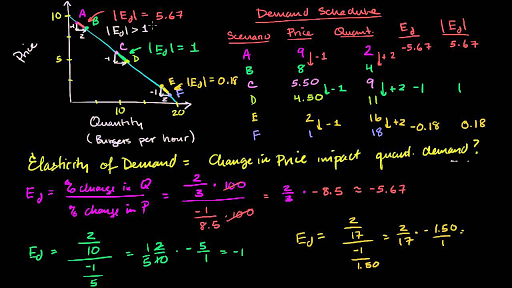 10
A
B
|E_d| = 5.67
|E_d| > 1
-1
2
Price
5
C
D
|E_d| = 1
-1
2
E
F
|E_d| = 0.18
-1
2
10
20
Quantity
(Burgers per hour)
Demand Schedule
Scenario Price Quant. E_d |E_d|
A 9 ↓-1 2 ↓+2 -5.67 5.67
B 8 4
C 5.50 ↓-1 9 ↓+2 -1 1
D 4.50 11
E 2 ↓-1 16 ↓+2 -0.18 0.18
F 1 18
Elasticity of Demand = Change in Price impact quant. demand? ...
E_d = % change in Q / % change in P = (2/3 · 100) / (-1/8.5 · 100) = 2/3 · -8.5 ≈ -5.67
E_d = (2/10) / (-1/5) = 2/10 · -5/1 = -1
E_d = (2/17) / (-1/1.50) = 2/17 · -1.50/1 =